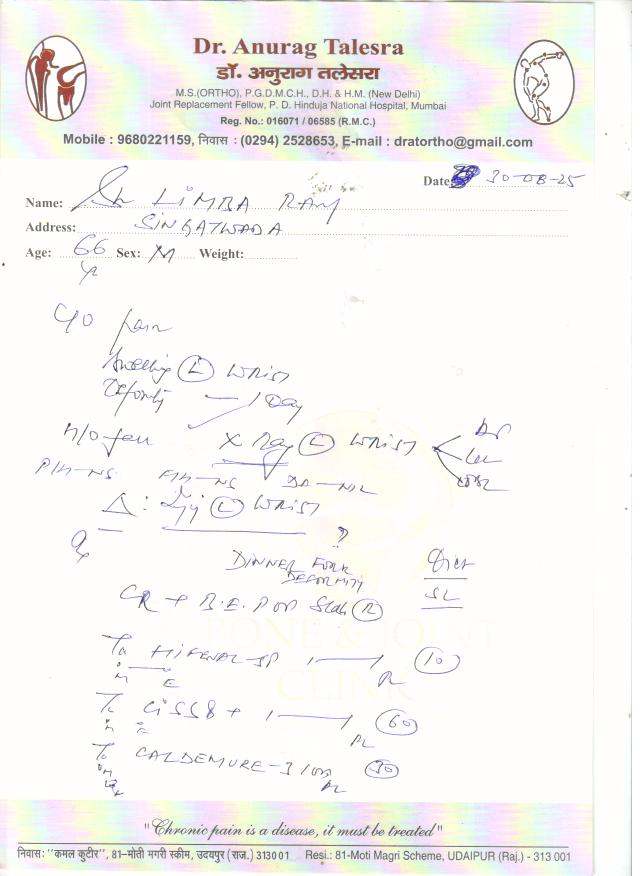 Dr. Anurag Talesra
डॉ. अनुराग तलेसरा
M.S.(ORTHO), P.G.D.M.C.H., D.H. & H.M. (New Delhi)
Joint Replacement Fellow, P. D. Hinduja National Hospital, Mumbai
Reg. No.: 016071 / 06585 (R.M.C.)
Mobile : 9680221159, निवास : (0294) 2528653, E-mail : dratortho@gmail.com
Date 30-08-25
Name: Sh LIMBA RAM
Address: SINGATWADA
Age: 66 yr Sex: M Weight:
C/O Pain
Swelling (L) WRIST
Deformity — 1 Day
H/O fall X Ray (L) WRIST
AP
Lat
P/H-NS F/H-NS DA-NIL
Δ: Inj (L) WRIST
?
DINNER FORK
DEFORMITY
Diet
SL
CR + B.E. POP Slab
BONE & JOINT
CLINIC
HIFENAL-SP 1 — 1 (10)
M E
CISS8 + 1 — 1 (60)
CALDEMURE-3 (30)
"Chronic pain is a disease, it must be treated"
निवासः "कमल कुटीर", 81-मोती मगरी स्कीम, उदयपुर (राज.) 313001 Resi.: 81-Moti Magri Scheme, UDAIPUR (Raj.) - 313 001